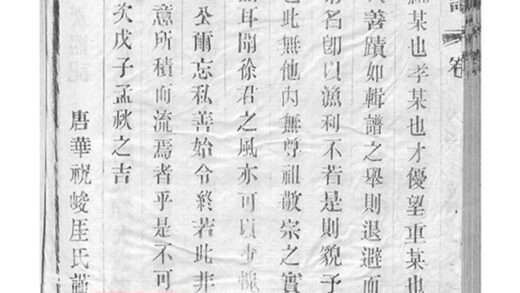 卷
某也孝某也才優望重某也
善蹟如輯譜之舉則退避而
名卽以漁利不若是則貌予
也此無他內無尊祖敬宗之實
耳聞徐君之風亦可以少
公爾忘私善始令終若此非
意所積而流焉者乎是不可
次戊子孟秋之吉
唐華祝峻厓氏謹